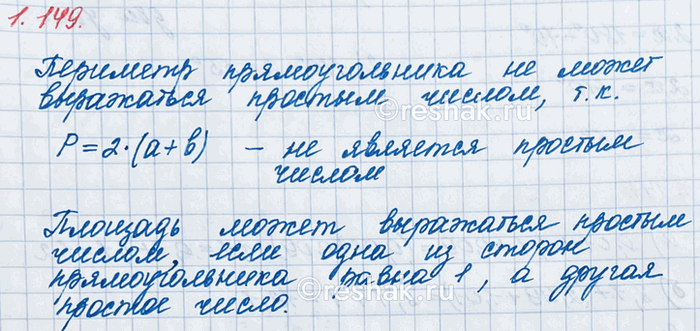 1.149.
Периметр прямоугольника не может
выражаться простым числом, т.к.
P = 2·(a+b) – не является простым
числом
Площадь может выражаться простым
числом, если одна из сторон
прямоугольника равна 1, а другая
простое число.
reshak.ru
reshak.ru